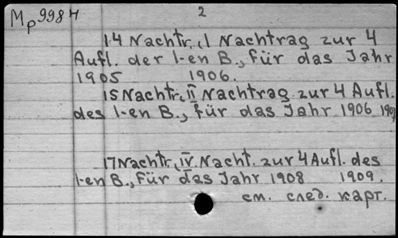 Mp 998 4 2
14 Nachtr., I Nachtrag zur 4
Aufl. der 1-en B., für das Jahr
1905 1906.
15 Nachtr., II Nachtrag zur 4 Aufl.
des 1-en B., für das Jahr 1906 1907
17 Nachtr., IV Nacht. zur 4 Aufl. des
1-en B., für das Jahr 1908 1909.
см. след. карт.